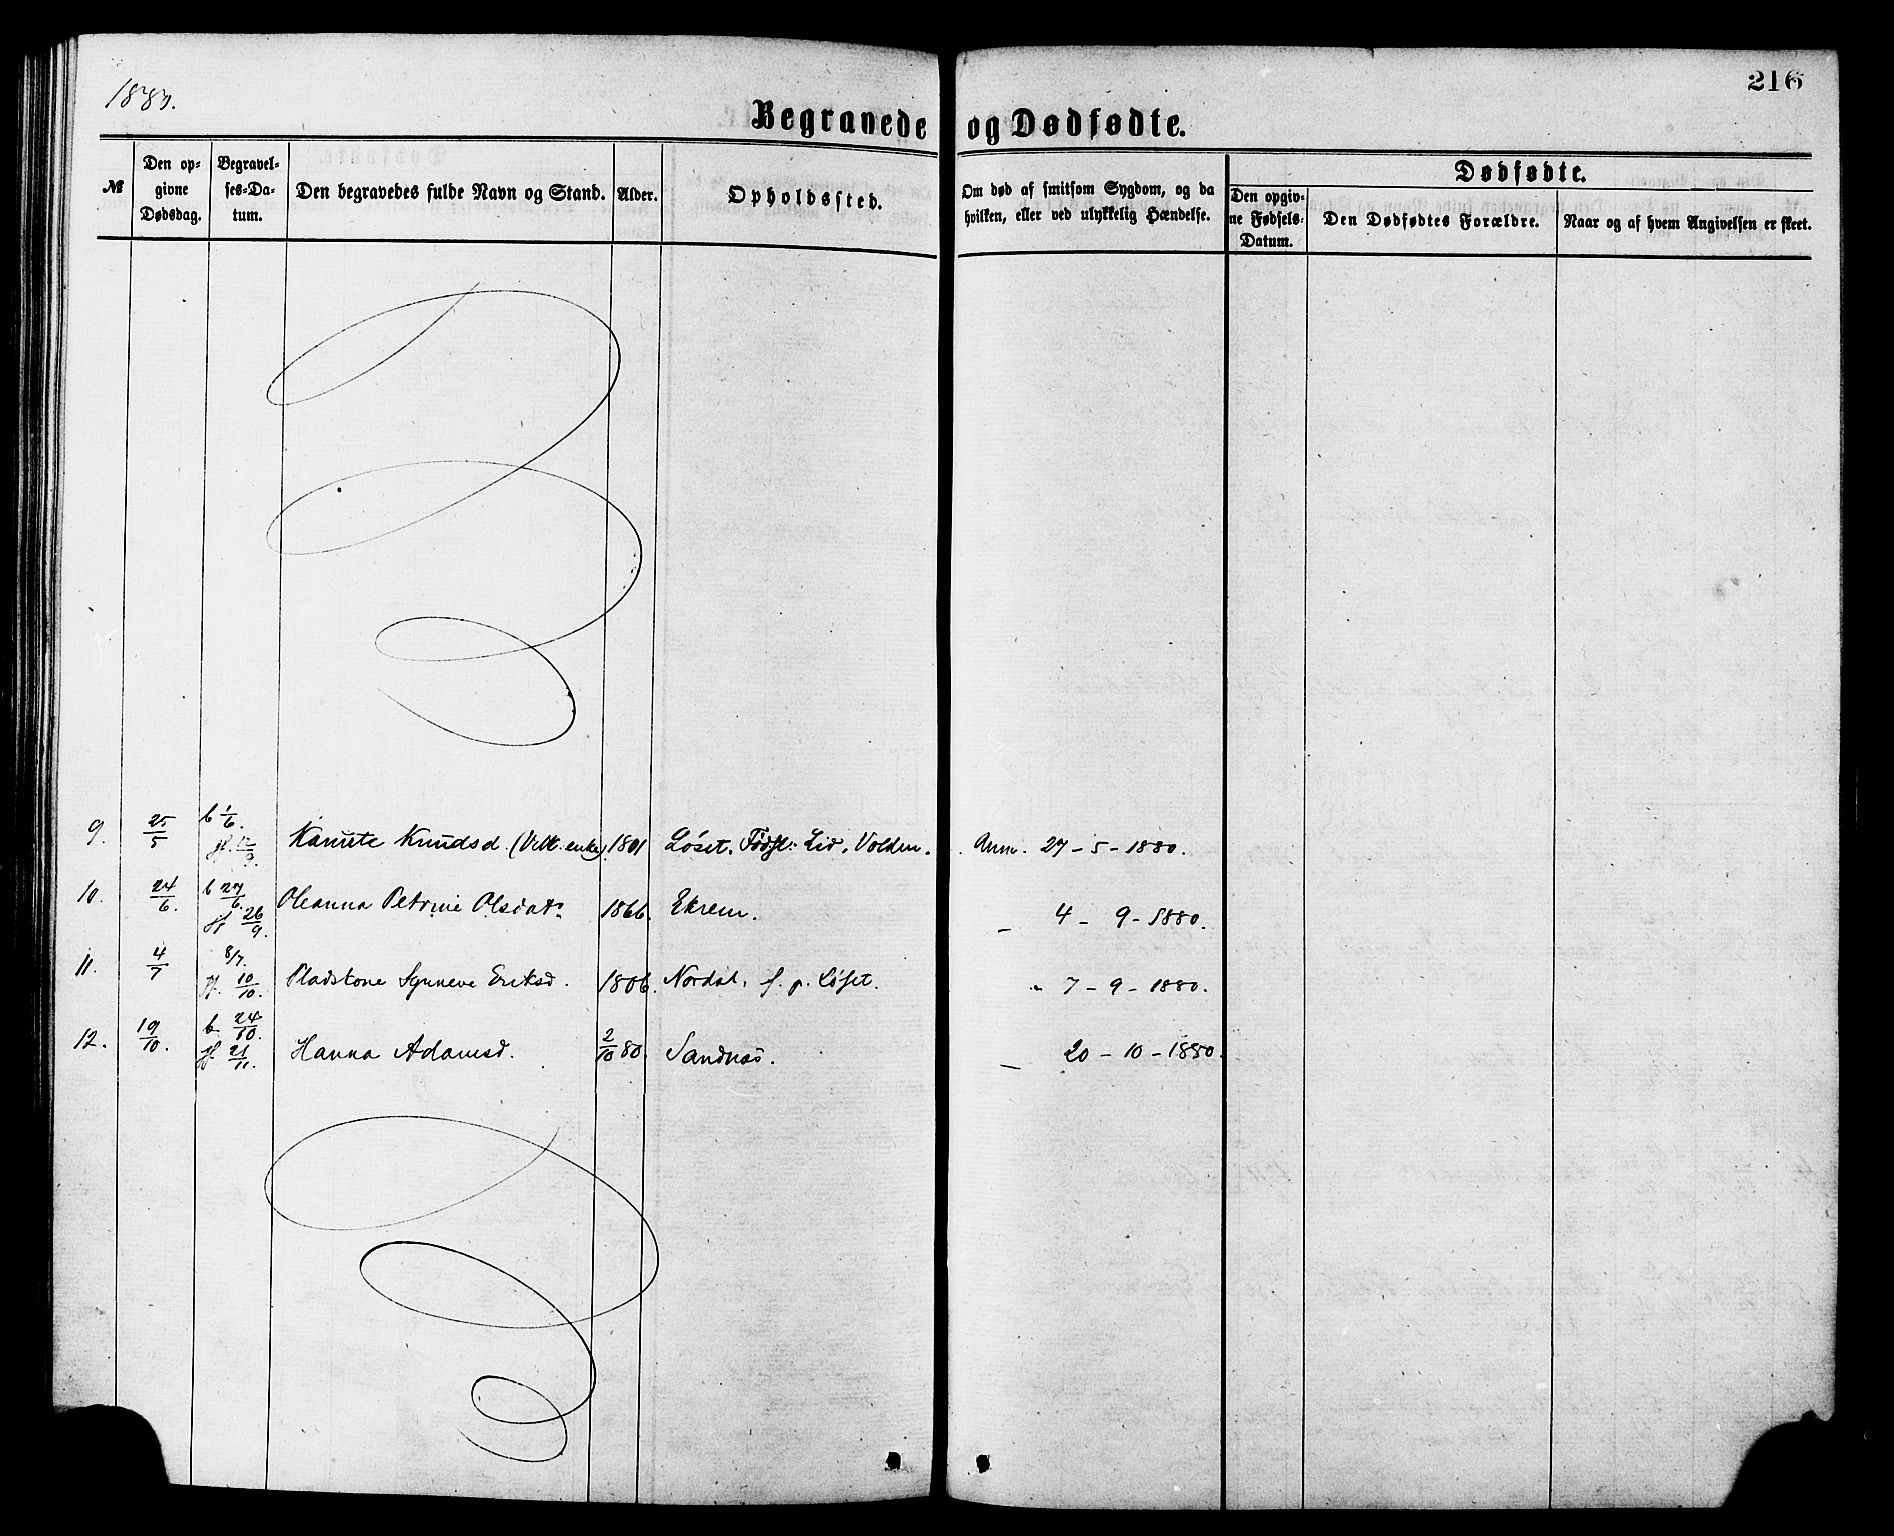 1880.
216
Begravede og Dødfødte.
№
Den op-
givne
Dødsdag.
Begravel-
ses-Da-
tum.
Den begravedes fulde Navn og Stand.
Alder.
Opholdssted.
Om død af smitsom Sygdom, og da
hvilken, eller ved ulykkelig Hændelse.
Dødfødte.
Den opgiv-
ne Fødsels-
Datum.
Den Dødfødtes Forældre.
Naar og af hvem Angivelsen er skeet.
9. 25/5 b 1/6. Knudsd. 1801 Løset. Fødst: Lid, Volden. Anm. 27-5-1880.
10. 24/6. b 27/6. jf 26/9. Oleanna Petrine Olsdatr 1866. Ekrem. — 4 - 9 - 1880.
11. 4/7 8/7. jf. 10/10. Pladskone Synneve Eriksd. 1806. Nordal, f. p. Løset. " 7 - 9 - 1880.
12. 19/10. b 24/10. jf. 21/11. Hanna Adamsd. 2/10 80. Sandnes. — 20 - 10 - 1880.